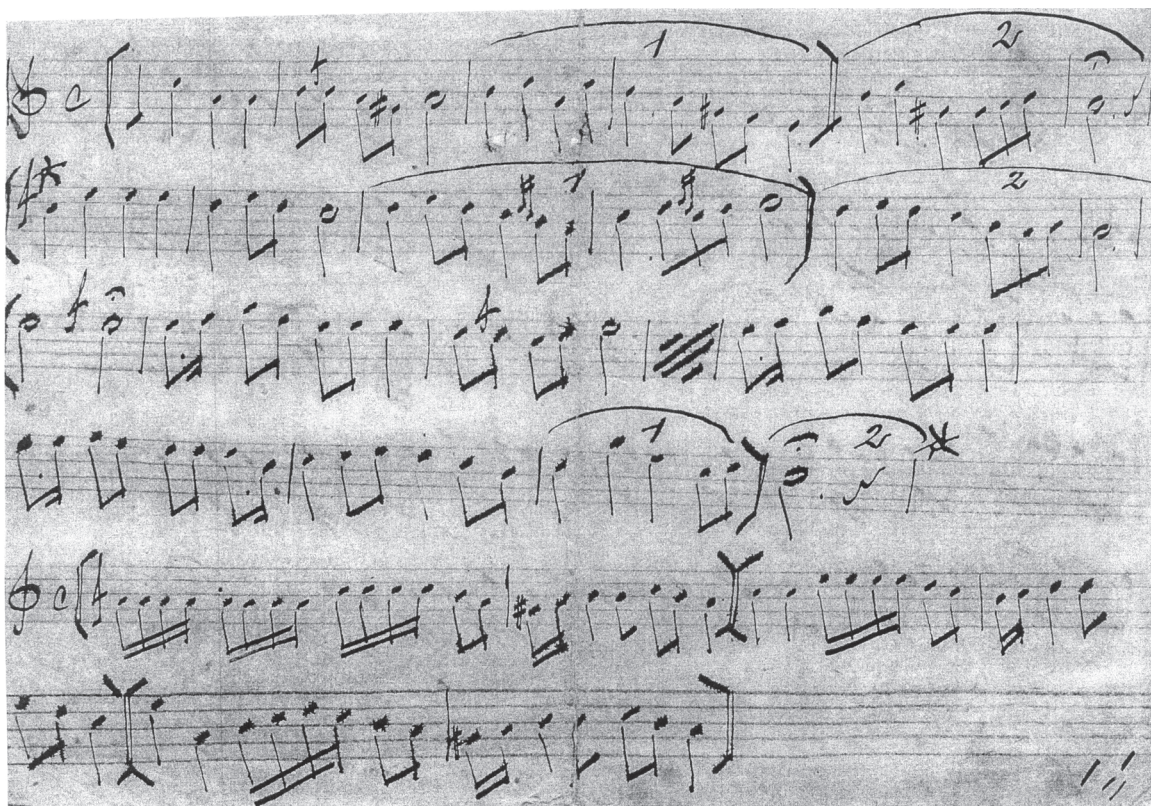 1 2
1 2
1 2